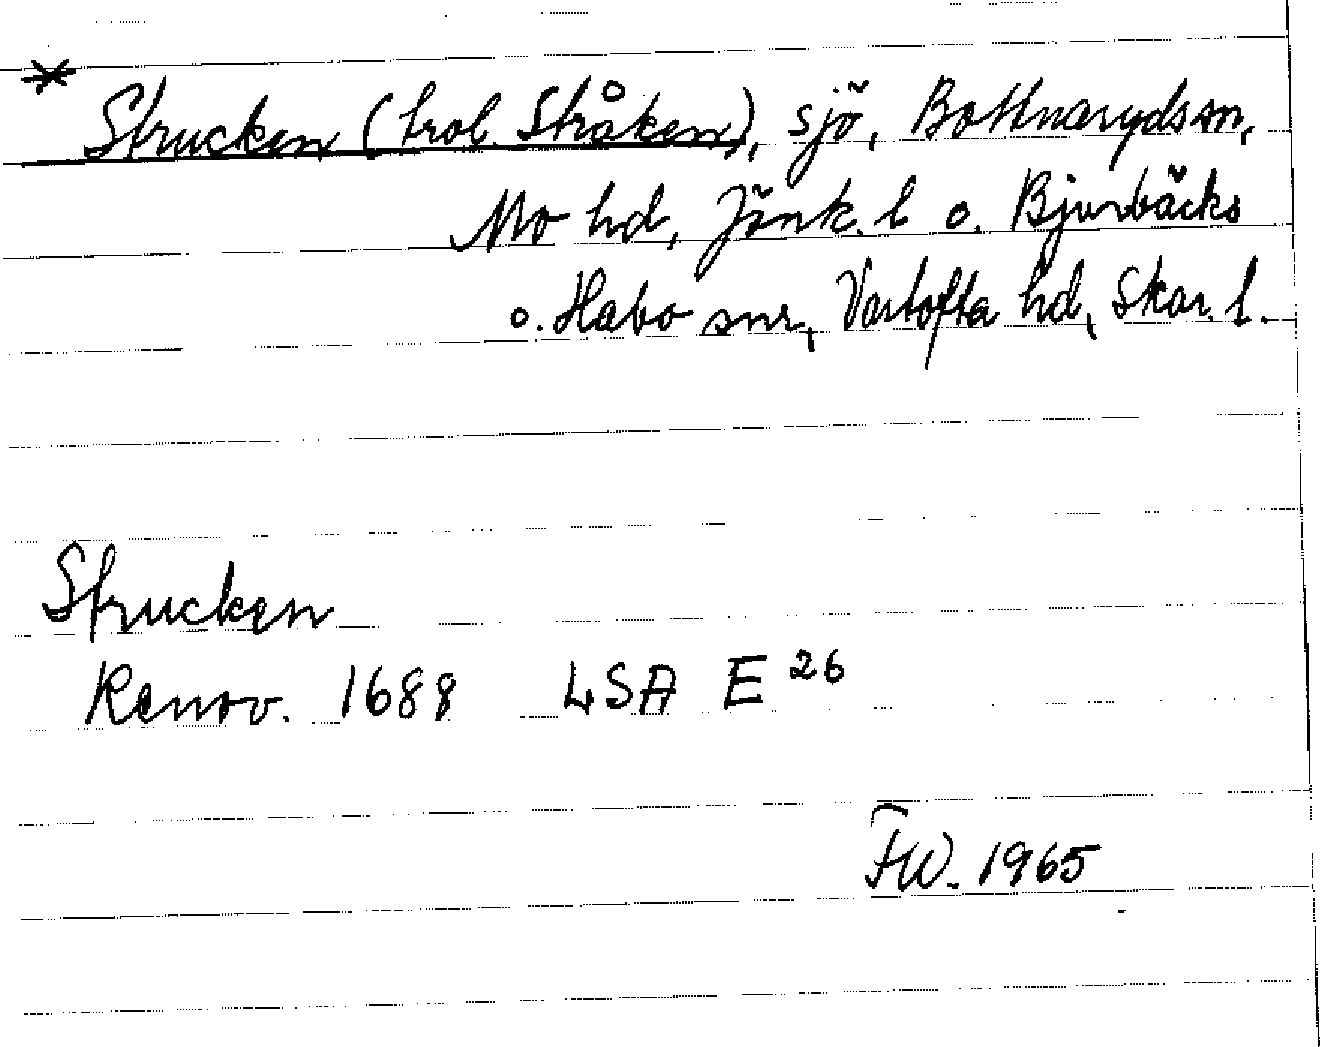 * Strucken (trol. Stråken), sjö, Bottnaryds sn,
Mo hd, Jönk. l o. Bjurbäcks
o. Habo snr, Vartofta hd, Skar. l.
Strucken
Renov. 1688 LSA E 26
FW. 1965